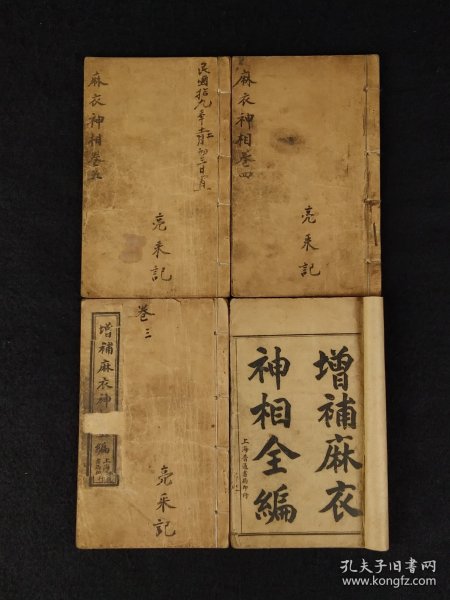 麻衣神相卷五
民國拾九年十二月初三日買
亮采記
麻衣神相卷四
亮采記
卷三
增補麻衣神
編
亮采記
增補麻衣
神相全編
上海普通書局印行
孔夫子旧书网
www.kongfz.com